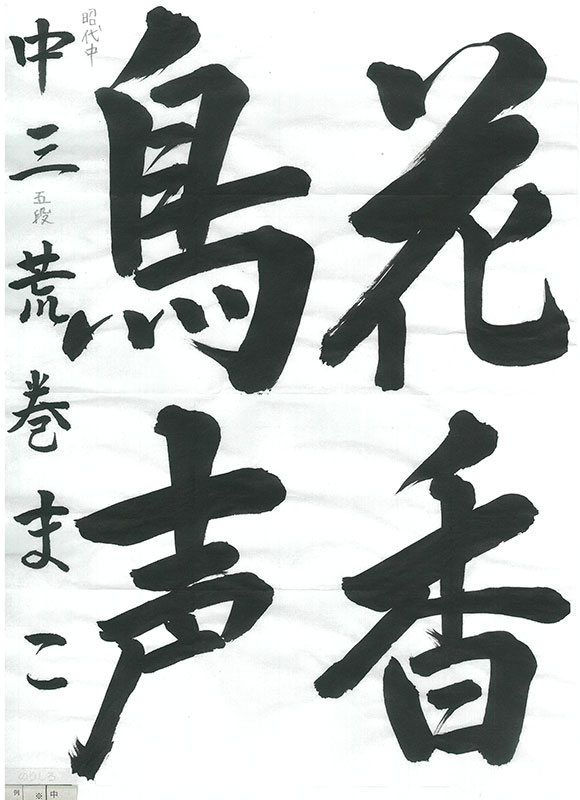 花香
鳥声
昭代中
中三 五段 荒巻まこ
のりしろ
例 ※ 中